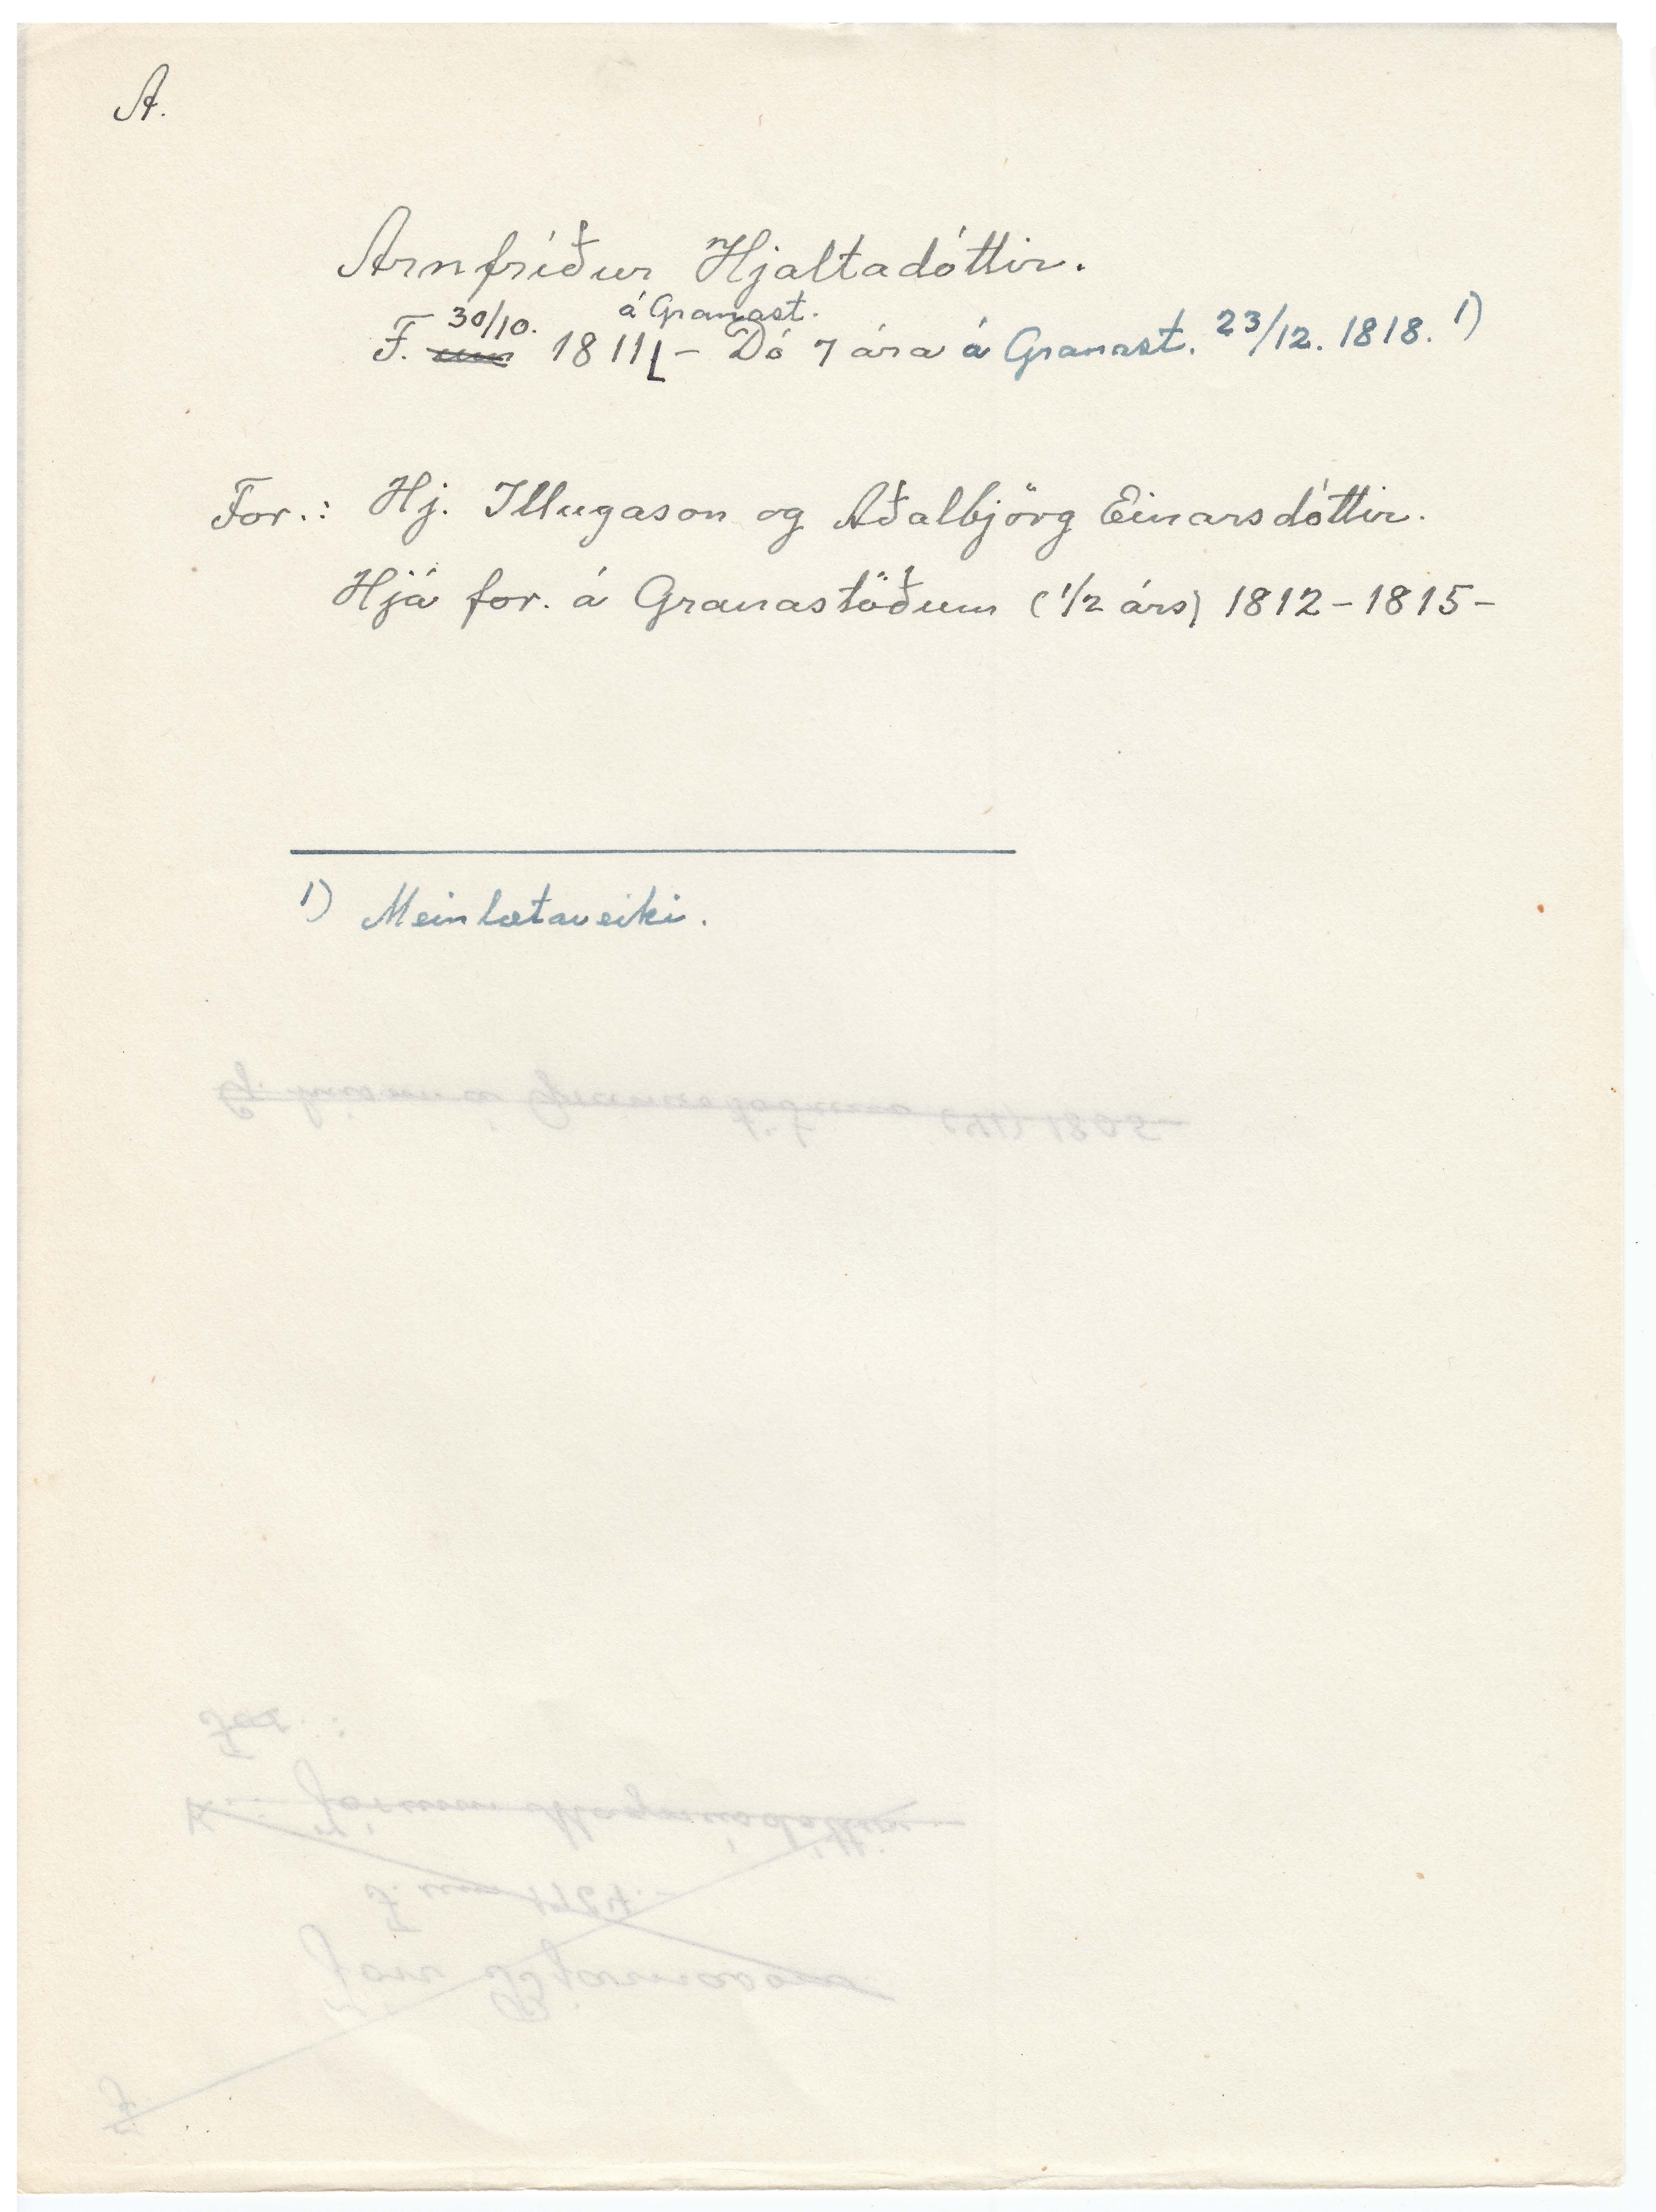 A.
Arnfríður Hjaltadóttir.
30/10. á Granast.
F. um 1811 – Dó 7 ára á Granast. 23/12. 1818. 1)
For.: Hj. Illugason og Aðalbjörg Einarsdóttir.
Hjá for. á Granastöðum (1/2 árs) 1812-1815-
1) Meinlætaveiki.